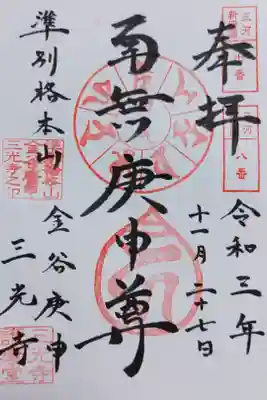 奉拝
令和三年
十一月二十七日
南無庚申尊
準別格本山
金谷庚申
三光寺
八番